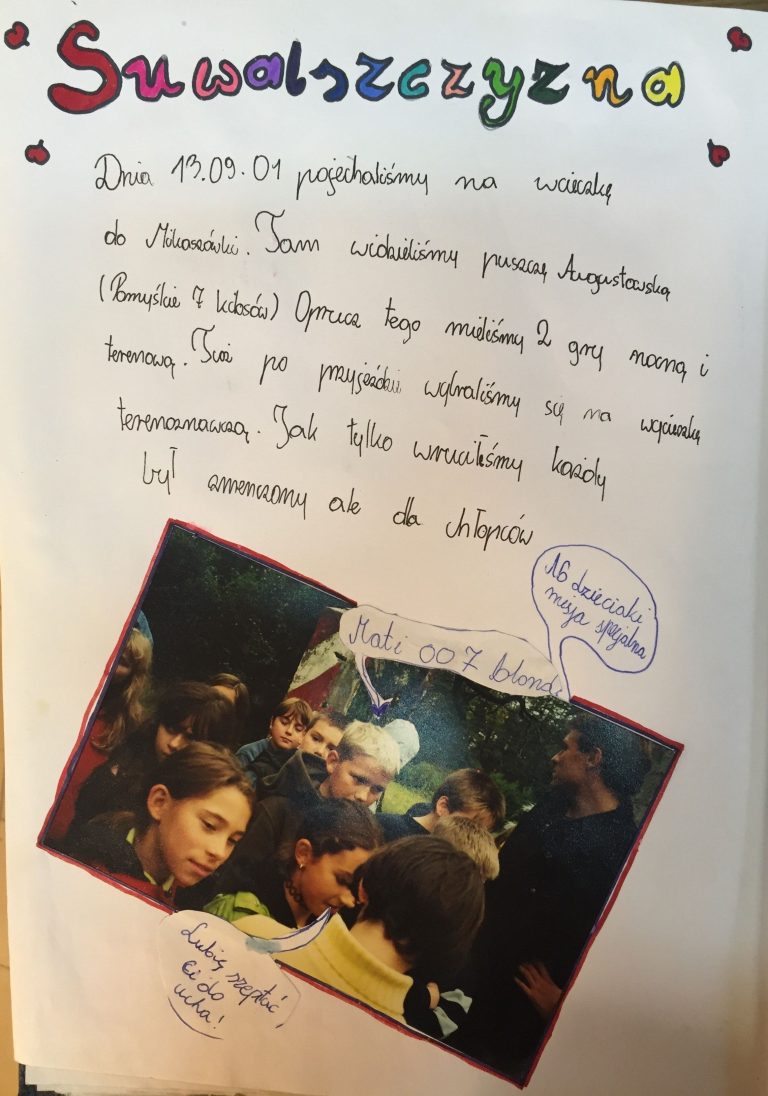 Suwalszczyzna
Dnia 13.09.01 pojechaliśmy na wcieczkę
do Mikaszówki. Tam widzieliśmy puszczę Augustowską
(Pomyślcie 7 kolosów) Oprucz tego mieliśmy 2 gry nocną i
terenową. Tuż po przyjeździe wybraliśmy się na wycieczkę
terenoznawczą. Jak tylko wruciliśmy każdy
był zmenczony ale dla chłopców
16 dzieciaki
misja specjalna
Mati 007 blond
Lubię szeptać
Ci do
ucha!